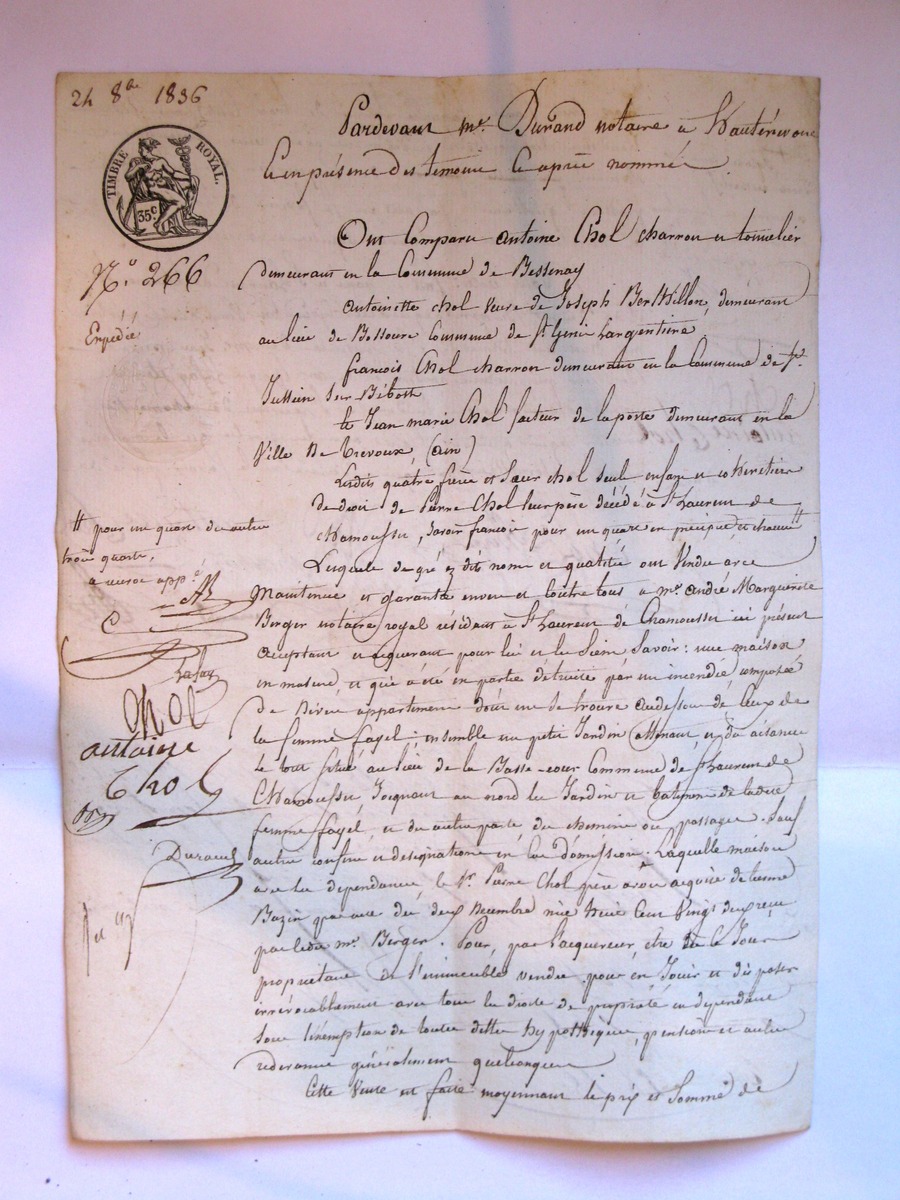 24 8bre 1836
TIMBRE ROYAL.
35c
No. 266
Expédié
Pardevant me. Durand notaire à
Et en présence des témoins ci après nommés.
Ont Comparu antoine Chol charron et tonnelier
demeurant en la Commune de Bessenay
antoinette chol veuve de Joseph Berthillon, demeurant
au lieu de Commune de St. Genis L'argentiere
francois Chol charron demeurant en la Commune de St.
Jullien Sur Bibost
Et Jean marie Chol facteur de la poste demeurant en la
Ville De Trevoux, (ain)
Lesdits quatre frères et Sœur chol seuls enfans et cohéritiers
de droit de Pierre Chol leur père décédé à St Laurent de
chamousset, Savoir francois pour un quart en préciput, et chacun #
# pour un quart des autres
trois quarts.
Lesquels de gré ez dits noms et qualités ont Vendu avec
Maintenue et garantie envers et Contre tous à me. andré Marguerite
Berger notaire royal résidant à St Laurent de Chamousset ici présent
acceptant et acquérant pour lui et les Siens Savoir : une maison
en masure, et qui a été en partie détruite par un incendie, composée
de divers appartements dont un se trouve audessous de ceux de
la femme fayel ; ensemble un petit Jardin attenant, et des aisances
le tout situé au lieu de la Basse-cour Commune de St Laurent de
Chamousset, Joignant au nord les Jardin et batiment de ladite
femme fayel, et des autres parts, des chemins ou passages. Sauf
autres confins et designations en cas d'omission. Laquelle maison
avec les dependances, le Sr. Pierre Chol père avait acquise de
Bazin par acte du deux Décembre mil huit Cent Vingt deux reçu
par ledit me. Berger. Pour, par l'acquéreur, être dès ce Jour
propriétaire de l'immeuble vendu, pour en Jouir et disposer
irrévocablement avec tous les droits de propriété en dépendant
sous l'exemption de toutes dettes hypothèques, pensions et autres
redevances généralement quelconques
Cette Vente est faite moyennant le prix et Somme de
Chol
antoine
Chol
Durand